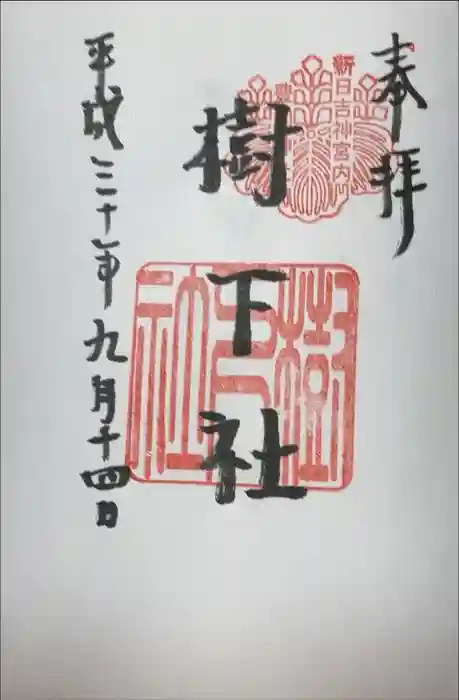 奉拝
新日吉神宮内
樹下社
樹下社
平成三十年九月十四日